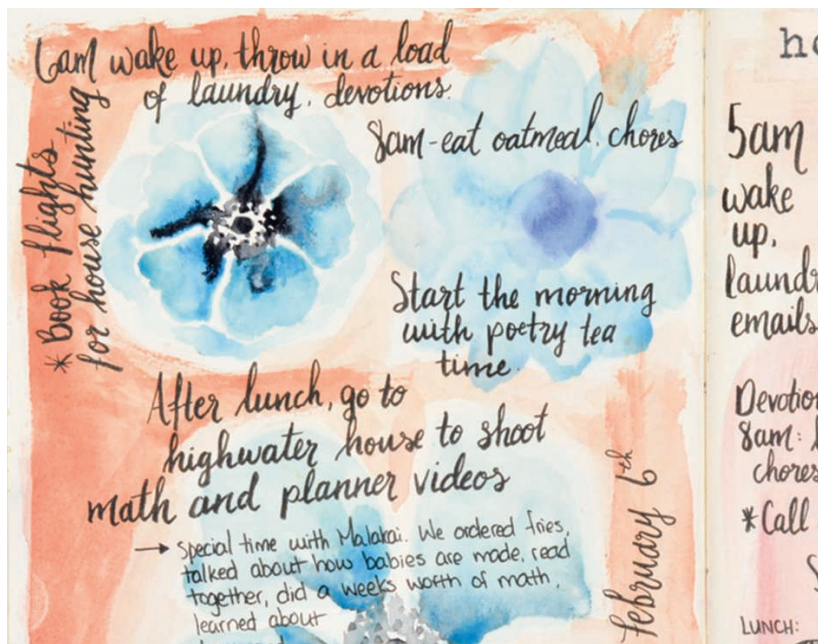 6am wake up, throw in a load
of laundry, devotions.
* Book flights
for house hunting
8am-eat oatmeal, chores
Start the morning
with poetry tea
time.
After lunch, go to
highwater house to shoot
math and planner videos
→ Special time with Malakai. We ordered fries,
talked about how babies are made, read
together, did a weeks worth of math,
learned about
february 6th
5am
wake
up,
emails
8am:
chores
*Call
LUNCH: